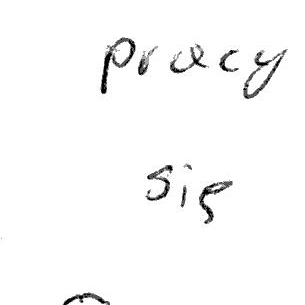 pracy
się